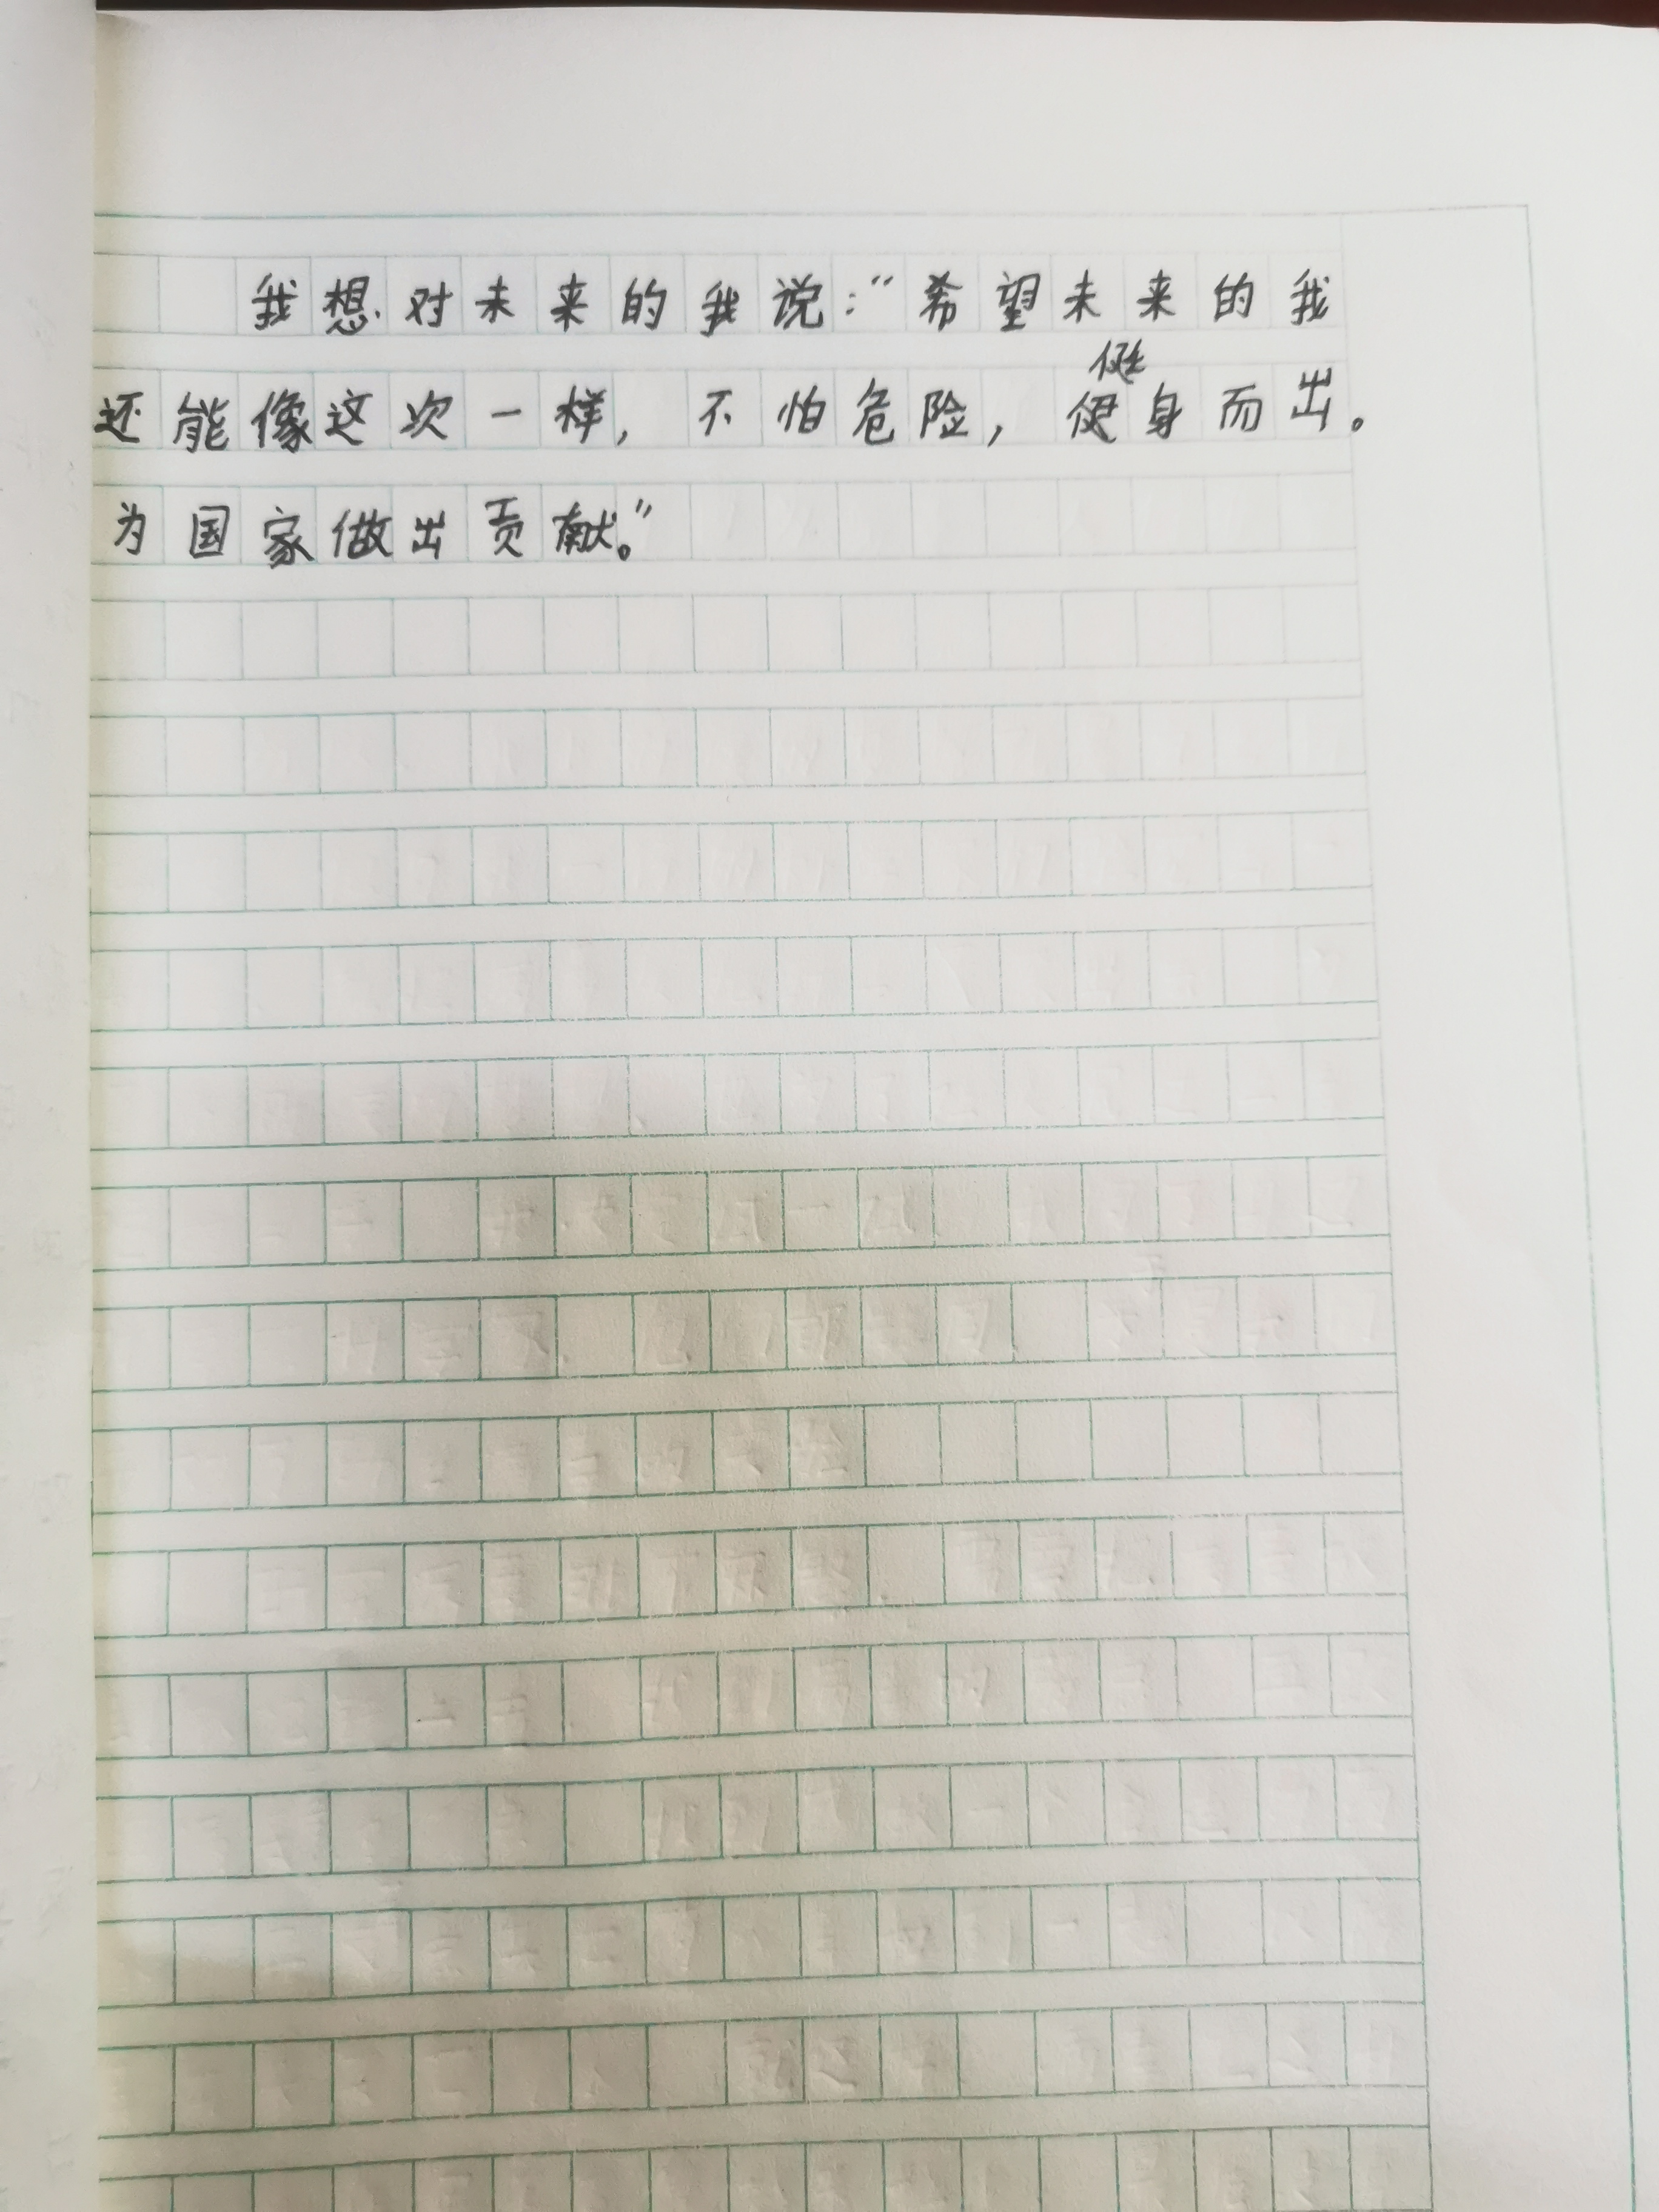 我想对未来的我说:“希望未来的我
挺
还能像这次一样,不怕危险,身而出。
为国家做出贡献。”